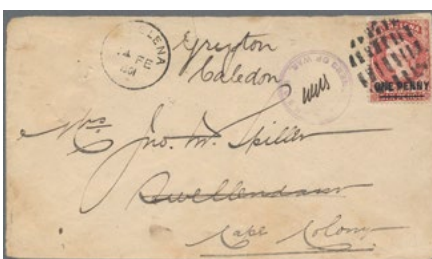 HELENA
FE
1901
Greyton
Caledon
OF WAR
ONE PENNY
Mrs
Jno. W. Spiller
Swellendam
Cape Colony